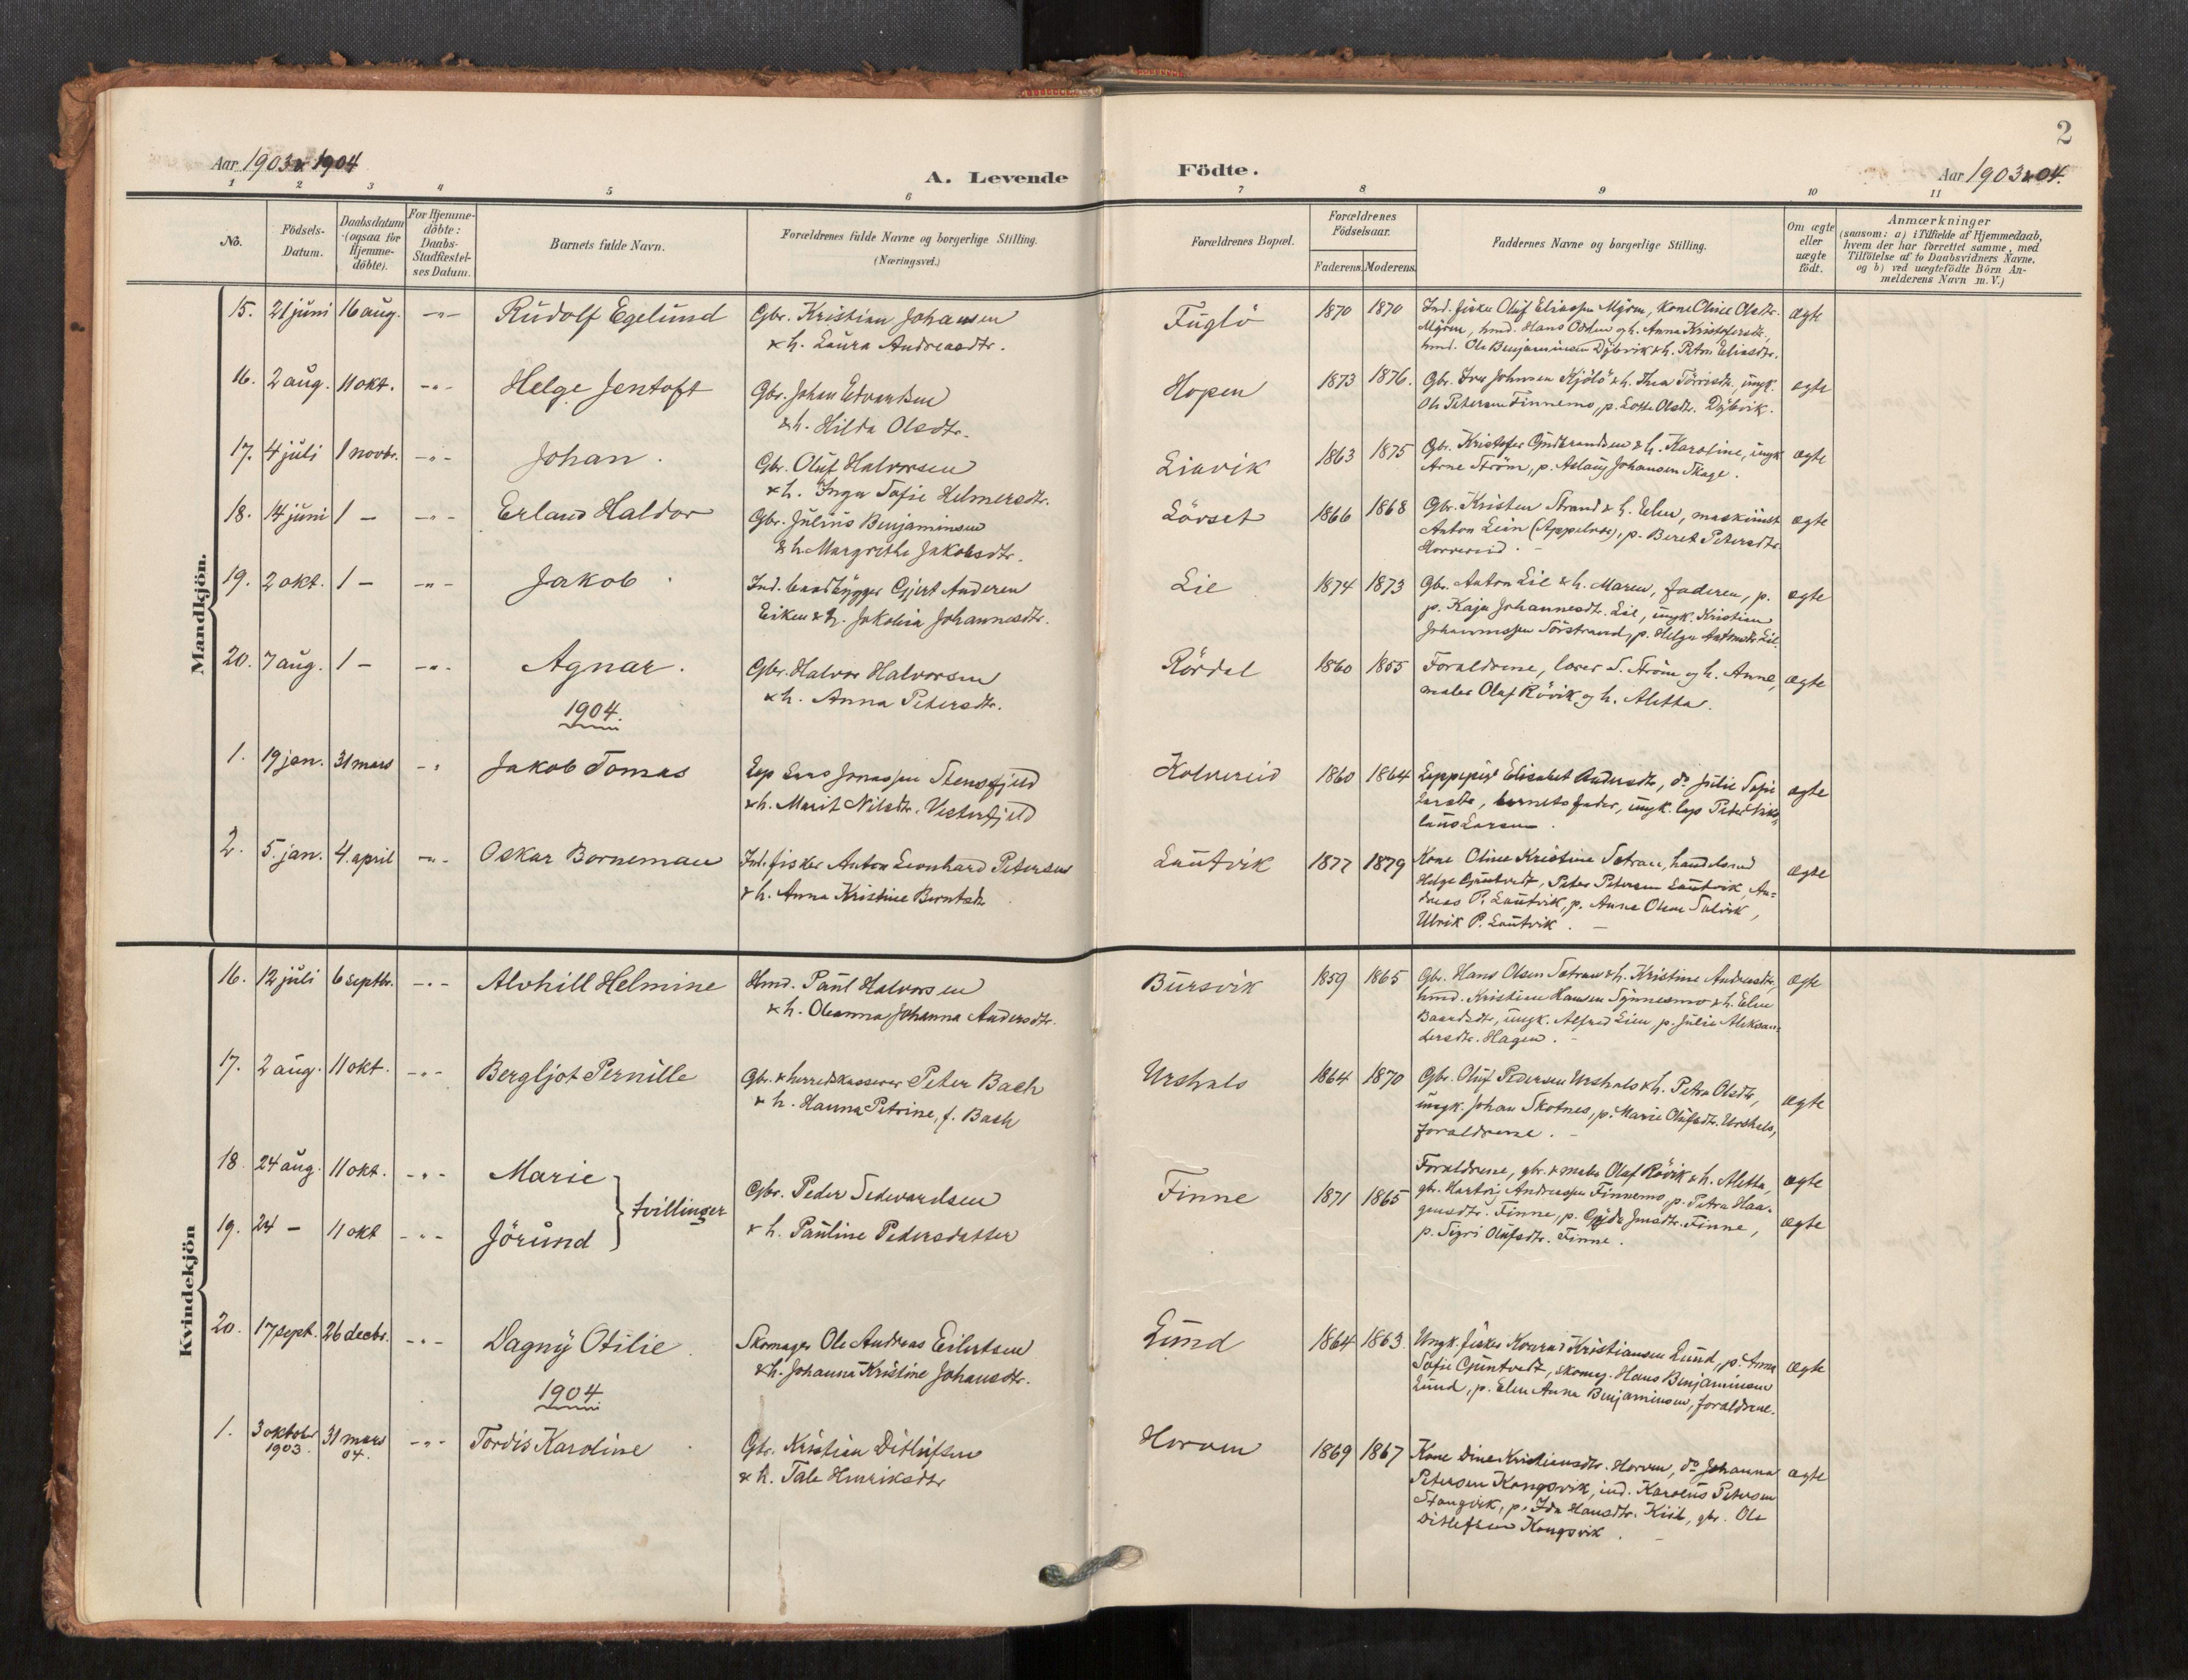 2
Aar 1903 & 1904
A. Levende Födte.
Aar 1903 & 04.
1 2 3 4 5 6 7 8 9 10 11
No.
Födsels-Datum.
Daabsdatum (ogsaa for Hjemmedöbte).
For Hjemmedöbte: Daabs-Stadfæstelses Datum.
Barnets fulde Navn.
Forældrenes fulde Navne og borgerlige Stilling.
(Næringsvei.)
Forældrenes Bopæl.
Forældrenes Födselsaar.
Faderens. Moderens.
Faddernes Navne og borgerlige Stilling.
Om ægte eller uægte födt.
Anmærkninger
(saasom: a) i Tilfælde af Hjemmedaab,
hvem der har forrettet samme, med
Tilföielse af to Daabsvidners Navne,
og b) ved uægtefödte Börn Anmelderens Navn m. V.)
Mandkjön.
15. 21 juni 16 aug. -"- Rudolf Egelund Gbr. Kristian Johansen
& h. Laura Andreasdtr.
Fuglö 1870 1870 Ind. fisker Oluf Eliassen Myren, kone Oline Olsdtr.
Myren, hmd. Hans Odden og h. Anna Kristofersdtr.,
hmd. Ole Benjaminsen Dybvik & h. Petra Eliasdtr.
ægte
16. 2 aug. 11 okt. -"- Helge Jentoft Gbr. Johan Edvardsen
& h. Hilda Olsdtr.
Hopen 1873 1876. Gbr. Iver Johnsen Kjölö & h. Thea Törrisdtr., ungk.
Ole Petersen Finnemo, p. Lotte Olsdtr. Dybvik.
ægte
17. 4 juli 1 novbr. -"- Johan. Gbr. Oluf Halvorsen
& h. Inga Sofie Helmersdtr.
Liavik 1863 1875 Gbr. Kristofer Gudbrandsen & h. Karoline, ungk
Arne Ström, p. Aslaug Johansen Skage.
ægte
18. 14 juni 1 - -"- Erland Haldor Gbr. Julius Benjaminsen
& h. Margrethe Jakobsdtr.
Lörset 1866 1868 Gbr. Kristen Strand & h. Elen, maskinist
Anton Lein (Appelvær), p. Beret Petersdtr.
Horvereid.
ægte
19. 2 okt. 1 - -"- Jakob Ind. baadbygger Gjert Andersen
Eiken & h. Jakobia Johannesdtr.
Lie 1874 1873 Gbr. Anton Lie & h. Maren, faderen, p.
p. Kaja Johannesdtr. Lie, ungk. Kristian
Johannessen Sörstrand, p. Helga Antonsdtr. Lie
ægte
20. 7 aug. 1 - -"- Agnar. Gbr. Halvor Halvorsen
& h. Anna Petersdtr.
Rördal 1860 1855 Foraldrene, lærer S. Ström og h. Anne,
maler Olaf Rövik og h. Aletta.
ægte
1904.
1. 19 jan. 31 mars -" Jakob Tomas Lap Lars Jonassen Stensfjeld
& h. Marit Nilsdtr. Vesterfjeld
Kolvereid 1860 1864 Lappepige Elisabet Andersdtr., do Julie Sofie
Larsdtr., barnets fader, ungk. lap Peder Niko-
laus Larsen.
ægte
2. 5. jan. 4. april -"- Oskar Borneman Ind. fisker Anton Leonhard Petersen
& h. Anna Kristine Berntsdtr
Lautvik 1877 1879 Kone Oline Kristine Sætran, handelsmd
Helge Gjuntvedt, Peter Petersen Lautvik, An-
dreas P. Lautvik, p. Anna Olsen Salvik,
Ulrik P. Lautvik.
ægte
Kvindekjön
16. 12 juli 6 septbr. -"- Alvhill Helmine Hmd. Paul Halvorsen
& h. Oleanna Johanna Andersdtr.
Bursvik 1859 1865 Gbr. Hans Olsen Sætran & h. Kristine Andreasdtr,
hmd. Kristian Hansen Synnesmo & h. Elen
Baardsdtr, ungk. Alfred Lien, p. Julie Aleksan-
dersdtr. Hagen.
ægte
17. 2 aug. 11 okt. -"- Bergljot Pernille Gbr. & herredskasserer Peter Bach
& h. Hanna Petrine, f. Bach
Urshals 1864 1870 Gbr. Oluf Pedersen Urshals & h. Petra Olsdtr,
ungk. Johan Skotnes, p. Marie Olufsdtr. Urshals,
foraldrene.
ægte
18. 24 aug. 11 okt. -"- Marie
19. 24 - 11 okt -"- Jörund
tvillinger
Gbr. Peder Sedevardsen
& h. Pauline Pedersdatter
Finne 1871 1865 Foraldrene, gbr. & maler Olaf Rövik & h. Aletta,
gbr. Hartvig Andreassen Finnemo, p. Petra Haa-
gensdtr. Finne, p. Gjda Jensdtr. Finne,
p. Sigri Olufsdtr. Finne.
ægte
ægte
20. 17 sept. 26 decbr. -"- Dagny Otilie. Skomager Ole Andreas Eilertsen
& h. Johanna Kristine Johansdtr.
Lund 1864 1863. Ungk. fisker Konrad Kristiansen Lund, p. Anna
Sofie Gjuntvedt, skomag. Hans Benjaminsen
Lund, p. Elen Anna Benjaminsen, foraldrene.
ægte
1904
1. 3 oktober 1903. 31 mars 04. -"- Tordis Karoline Gbr. Kristian Ditlufsen
& h. Tale Henriksdtr
Horven 1869 1867 Kone Dine Kristiansdtr. Horven, do Johanna
Petersen Kongsvik, ind. Karolus Petersen
Stangvik, p. Ida Hansdtr. Kiil, gbr. Ole
Ditlefsen Kongsvik.
ægte